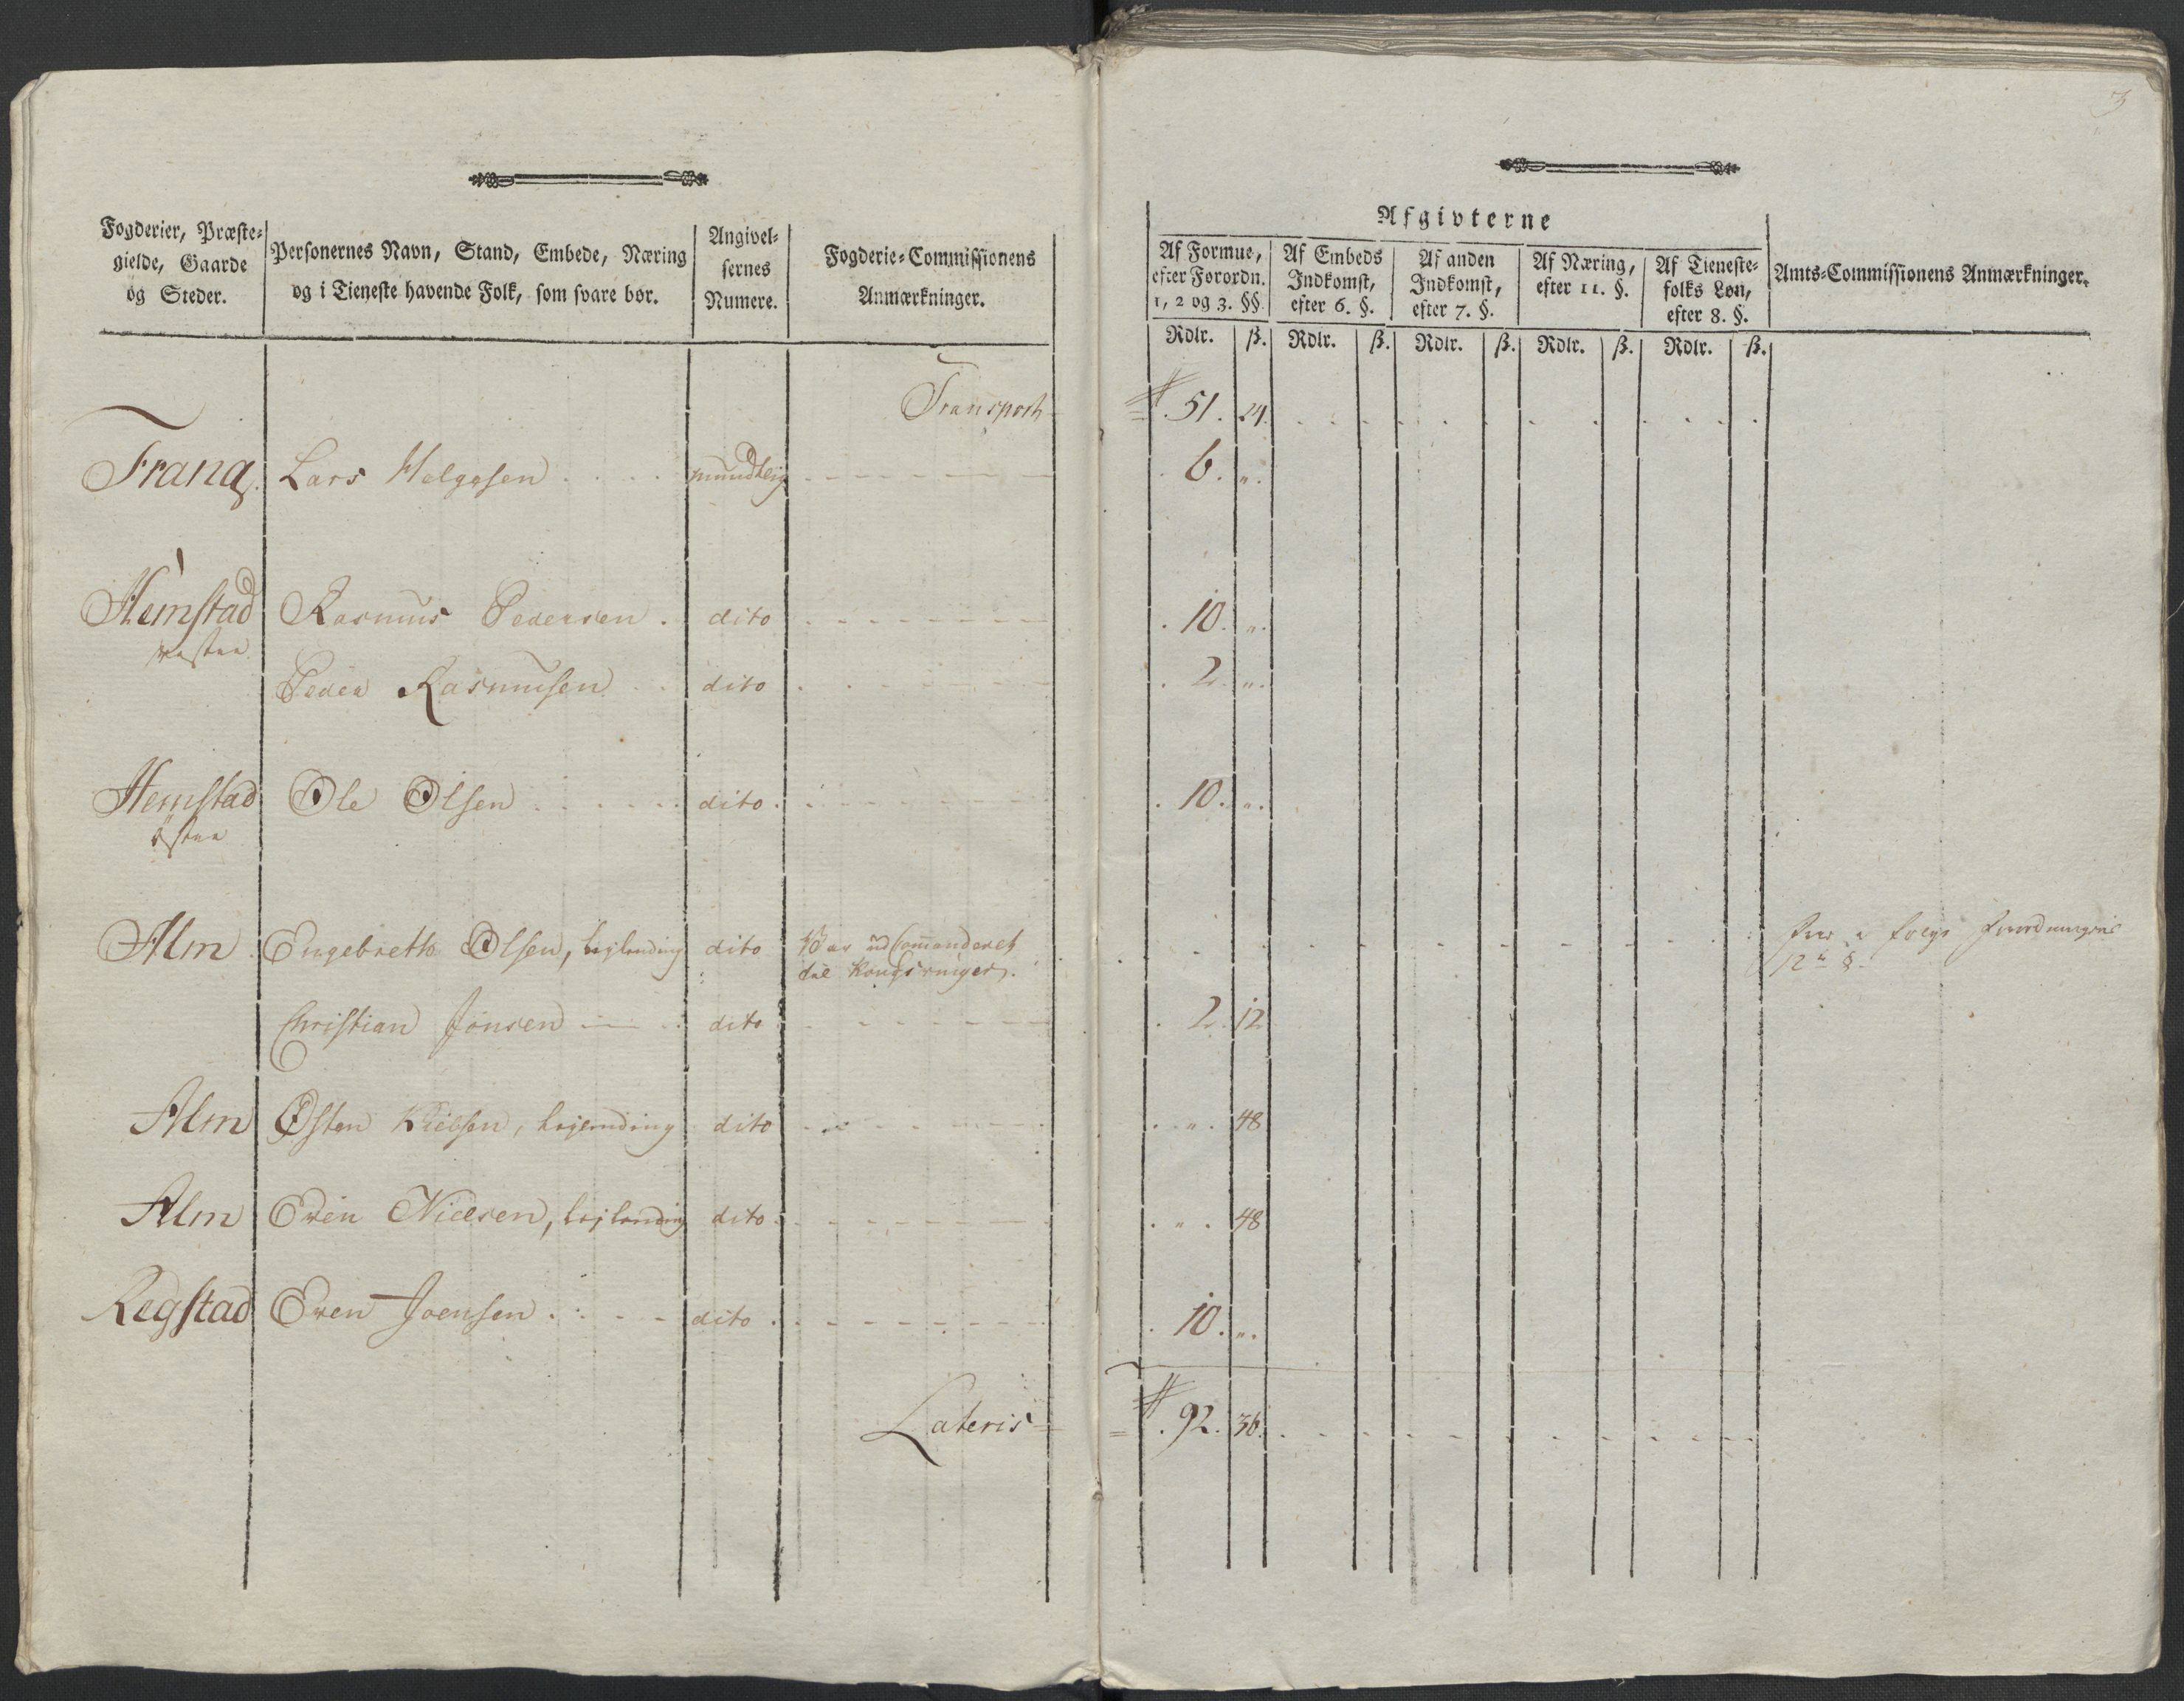 3
Fogderier, Præste-
gielde, Gaarde
og Steder.
Personernes Navn, Stand, Embede, Næring
og i Tieneste havende Folk, som svare bør.
Angivel-
sernes
Numere.
Fogderie-Commissionens
Anmærkninger.
Afgivterne
Af Formue,
efter Forordn.
1, 2 og 3. §§.
Af Embeds
Indkomst,
efter 6. §.
Af anden
Indkomst,
efter 7. §.
Af Næring,
efter 11. §.
Af Tieneste-
folks Løn,
efter 8. §.
Amts-Commissionens Anmærkninger.
Rdlr. ß. Rdlr. ß. Rdlr. ß. Rdlr. ß. Rdlr. ß.
Transport 51. 24.
Frang. Lars Helgesen mundtlig 6. "
Hemstad Rasmus Pedersen. dito 10. "
væstre
Peder Rasmusen dito 2. "
Hemstad Ole Olsen dito 10. "
østre
Alm Engebreth Olsen, lejlending dito Er ud Commanderet
til Kongsvinger.
12te §.
Christian Jonsen dito 2. 12
Alm Østen Nielsen, lejlending dito " 48
Alm Even Nielsen, lejlending dito " 48
Regstad Even Joensen. dito 10. "
Lateris 92. 36.